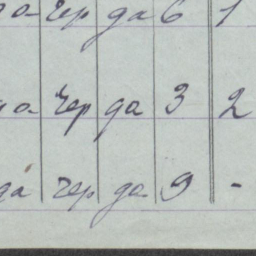 да чер да 6 1
да чер да 3 2
да чер да 9 -